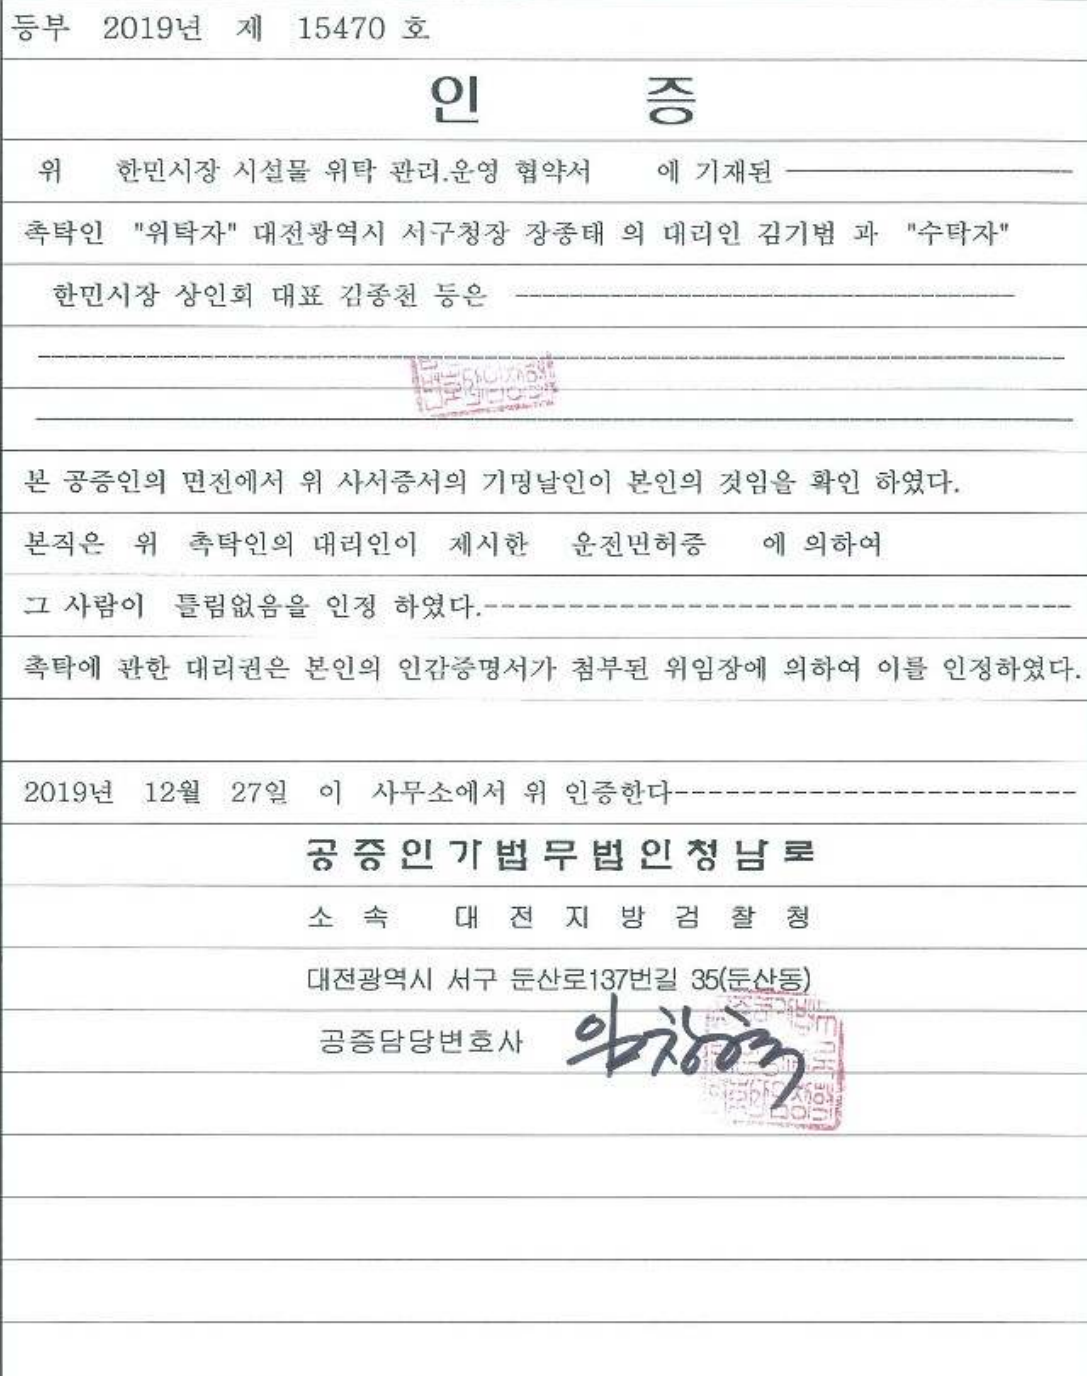 등부 2019년 제 15470 호
인 증
위 한민시장 시설물 위탁 관리.운영 협약서 에 기재된
촉탁인 "위탁자" 대전광역시 서구청장 장종태 의 대리인 김기범 과 "수탁자"
한민시장 상인회 대표 김종천 등은
본 공증인의 면전에서 위 사서증서의 기명날인이 본인의 것임을 확인 하였다.
본직은 위 촉탁인의 대리인이 제시한 운전면허증 에 의하여
그 사람이 틀림없음을 인정 하였다.
촉탁에 관한 대리권은 본인의 인감증명서가 첨부된 위임장에 의하여 이를 인정하였다.
2019년 12월 27일 이 사무소에서 위 인증한다
공증인가법무법인청남로
소속 대전지방검찰청
대전광역시 서구 둔산로137번길 35(둔산동)
공증담당변호사